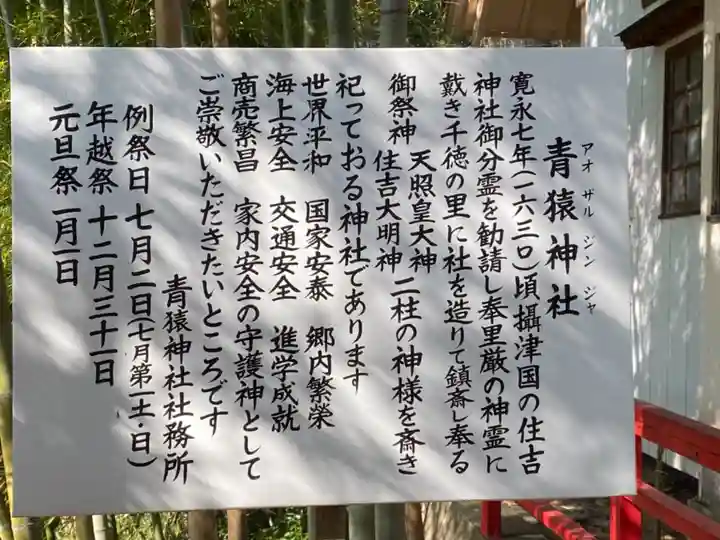 青猿神社
アオ ザル ジン ジャ
寛永七年(一六三〇)頃攝津国の住吉
神社御分霊を勧請し奉里厳の神霊に
戴き千徳の里に社を造りて鎮斎し奉る
御祭神 天照皇大神
住吉大明神 二柱の神様を斎き
祀っておる神社であります
世界平和 国家安泰 郷内繁栄
海上安全 交通安全 進学成就
商売繁昌 家内安全の守護神として
ご崇敬いただきたいところです
青猿神社社務所
例祭日 七月二日(七月第一土・日)
年越祭 十二月三十一日
元旦祭 一月一日